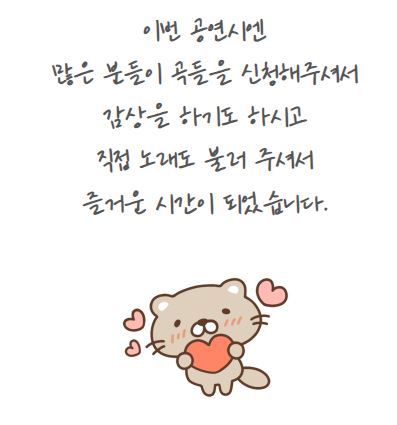 이번 공연시엔
많은 분들이 곡들을 신청해주셔서
감상을 하기도 하시고
직접 노래도 불러 주셔서
즐거운 시간이 되었습니다.